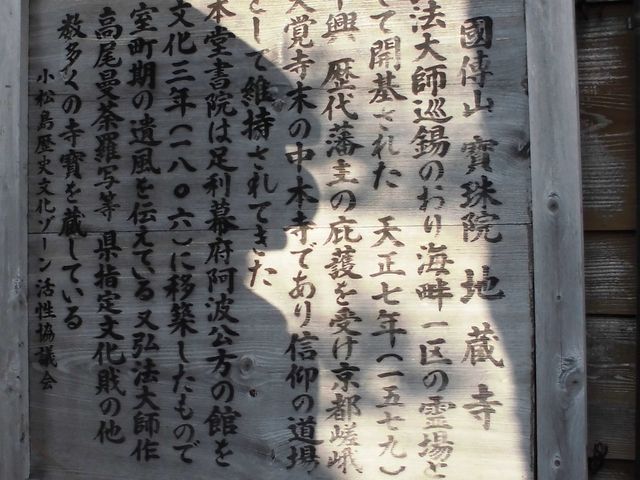 國傳山 寶珠院 地蔵寺
法大師巡錫のおり海畔一区の霊場と
して開基された 天正七年(一五七九)
中興 歴代藩主の庇護を受け京都嵯峨
大覚寺末の中本寺であり信仰の道場
として維持されてきた
本堂書院は足利幕府阿波公方の館を
文化三年(一八〇六)に移築したもので
室町期の遺風を伝えている 又弘法大師作
高尾曼荼羅写等 県指定文化財の他
数多くの寺寶を蔵している
小松島歴史文化ゾーン活性協議会